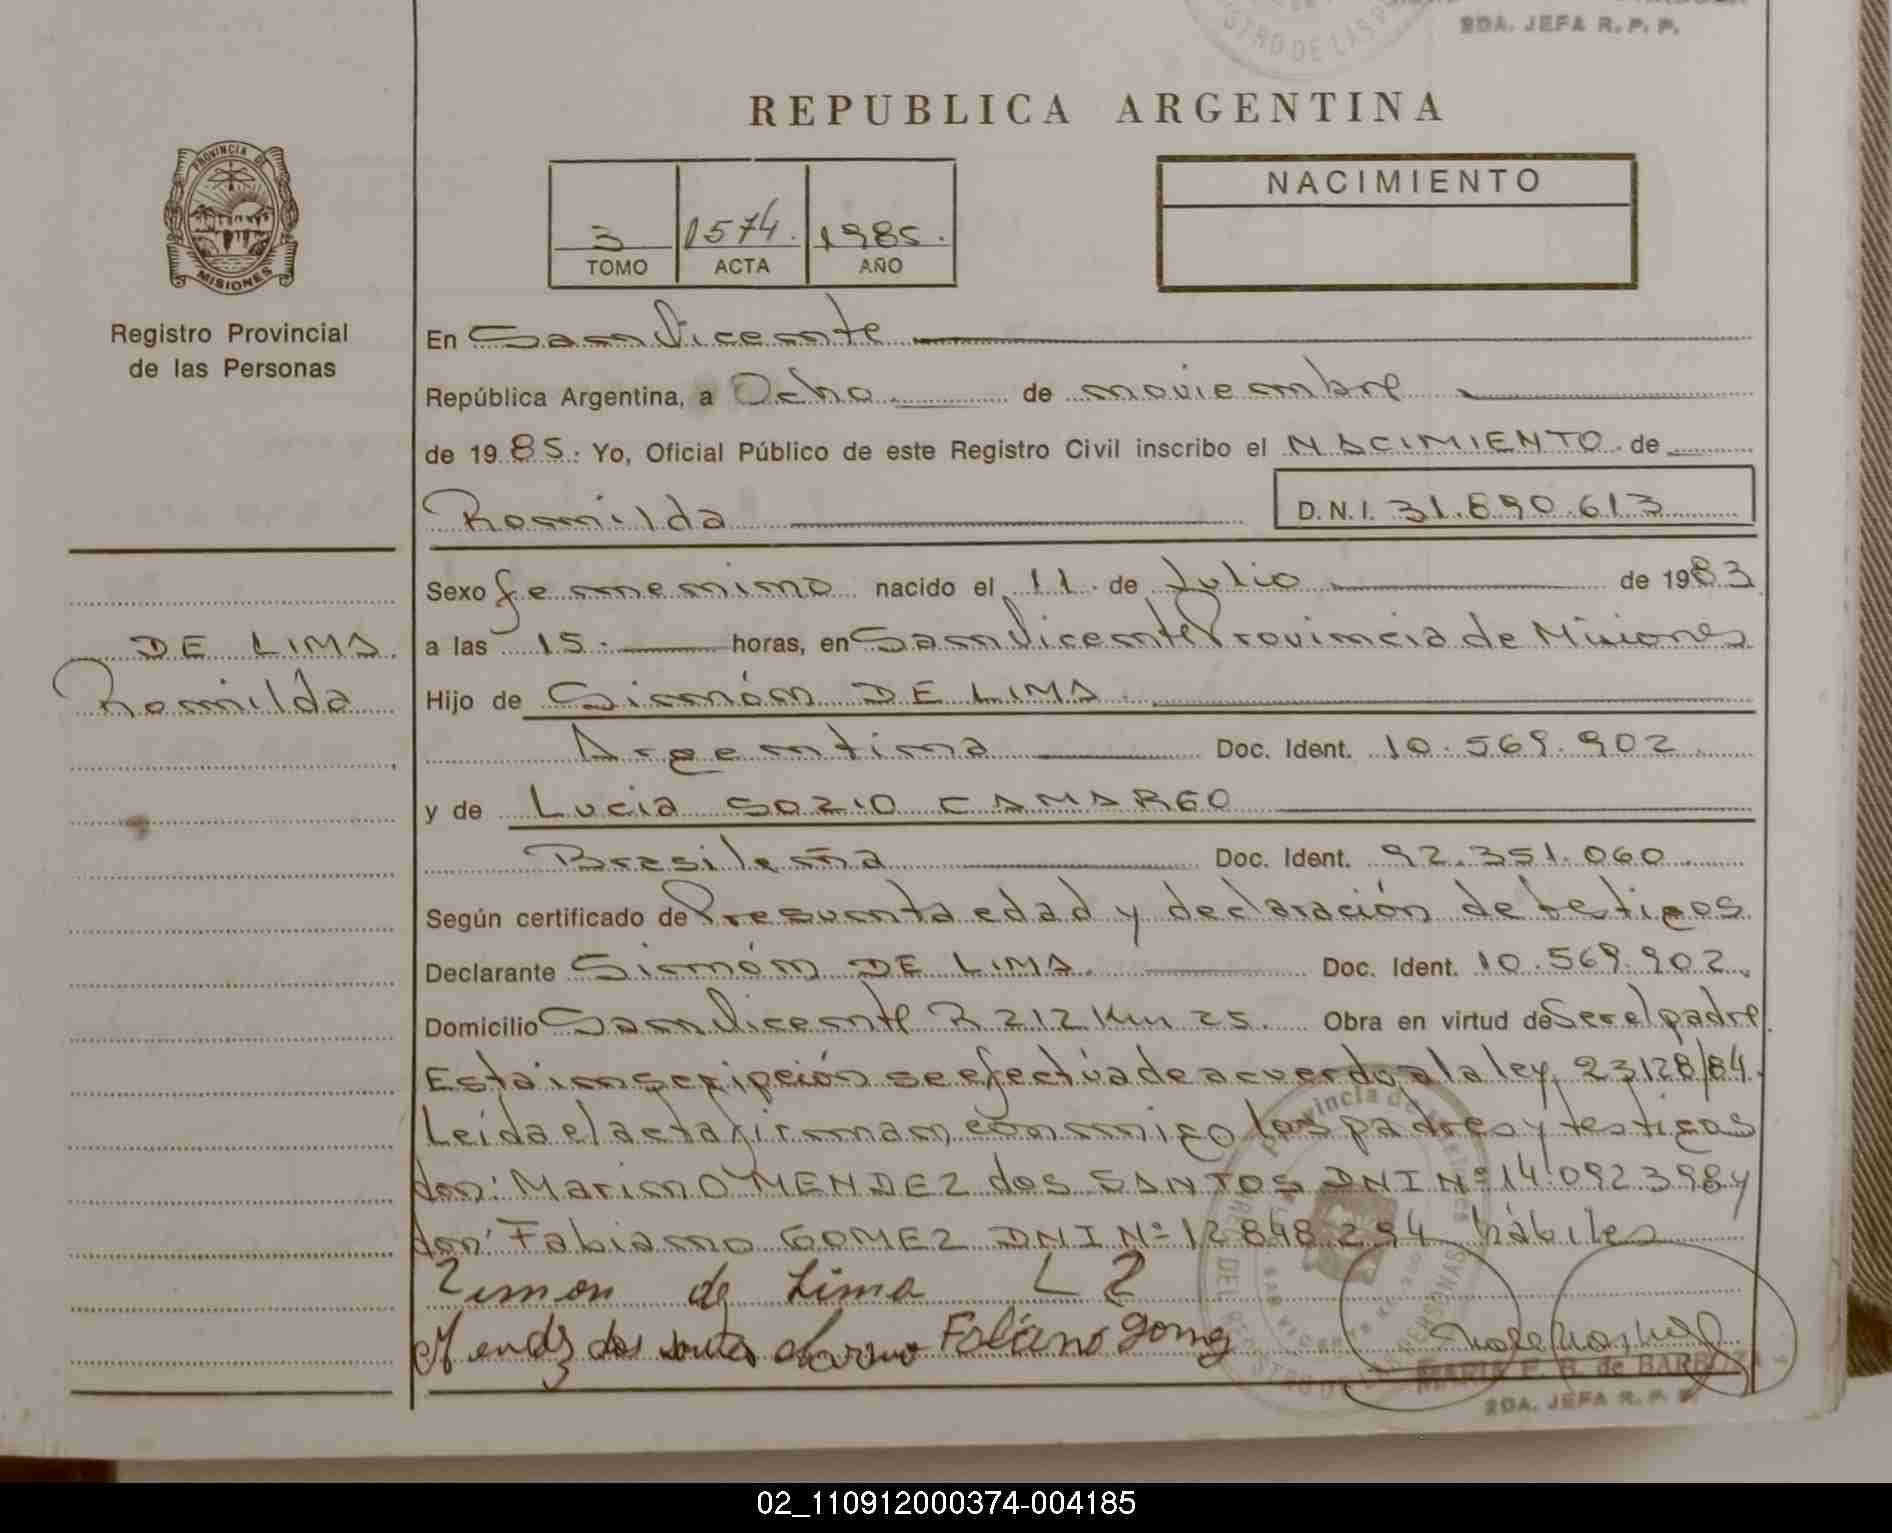 2DA. JEFA R. P. P.
STRO DE LAS P
REPUBLICA ARGENTINA
PROVINCIA DE
MISIONES
Registro Provincial
de las Personas
3 1574. 1985.
TOMO ACTA AÑO
NACIMIENTO
En San Vicente
República Argentina, a Ocho de noviembre
de 1985. Yo, Oficial Público de este Registro Civil inscribo el NACIMIENTO. de
Romilda D.N.I. 31.890.613
Sexo femenino nacido el 11. de Julio de 1983
DE LIMA.
Romilda
a las 15. horas, en San Vicente Provincia de Misiones
Hijo de Simón DE LIMA.
Argentina Doc. Ident. 10.569.902
y de Lucia SOZIO CAMARGO
Brasileña Doc. Ident. 92.351.060
Según certificado de Presunta edad y declaración de testigos
Declarante Simón DE LIMA. Doc. Ident. 10.569.902.
Domicilio San Vicente R 212 Km 25. Obra en virtud de Ser el padre.
Esta inscripción se efectúa de acuerdo a la ley 23128/84.
Leída el acta firman conmigo los padres y testigos
don: Marino MENDEZ dos SANTOS DNI Nº 14.092.398 y
don: Fabiano GOMEZ DNI Nº 12.848.294 hábiles
Simon de Lima L Z
Mendz dos santos Marino Fabiano Gomez
MARIA E. B. de BARBOZA
2DA. JEFA R. P. P.
02_110912000374-004185